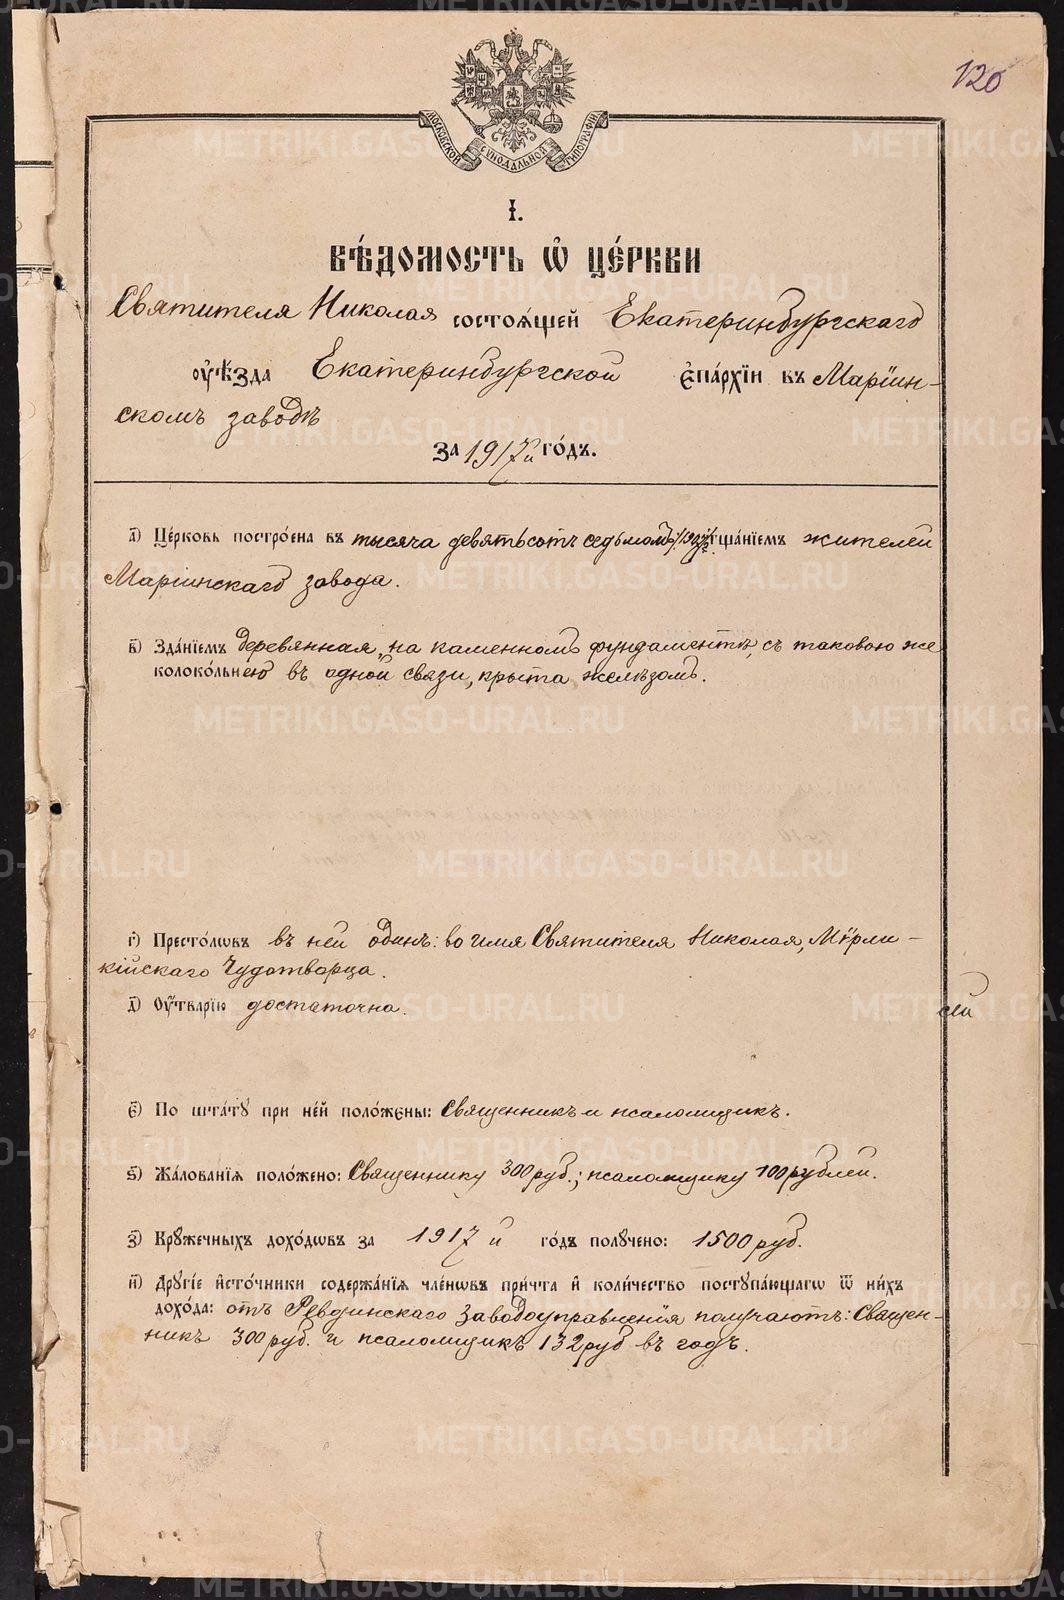 120
МОСКОВСКОЙ СѴНОДАЛЬНОЙ ТИПОГРАФІИ
І.
ВѢ́ДОМОСТЬ Ѡ҆ ЦЕ́РКВИ
Святителя Николая состоѧ́щей Екатеринбургскаго
оуѣ́зда Екатеринбургской є҆па́рхїи въ Марiин-
скомъ заводѣ
за 1917й го́дъ.
а҃) Це́рковь постро́ена въ тысяча девятьсотъ седьмомъ тщанїемъ жителей
Марiинскаго завода.
в҃) Зда́нїемъ деревянная, на каменномъ фундаментѣ, съ таковою же
колоко́льнею въ одной связи, крыта желѣзомъ.
г҃) Престо́лѡвъ въ ней одинъ: во имя Святителя Николая, Мѵрли-
кiйскаго Чудотворца.
д҃) Оу҆́тварїю достаточна.
сей
є҃) По шта́тꙋ при не́й поло́жены: Священникъ и псаломщикъ.
ѕ҃) Жа́лованїѧ поло́жено: Священнику 300 руб.; псаломщику 100 рублей.
з҃) Крꙋ́жечныхъ дохо́дѡвъ за 1917й годъ полꙋчено: 1500 руб.
и҃) Дрꙋгі́е и҆сто́чники содержа́нїѧ чле́нѡвъ при́чта и҆ коли́чество постꙋпа́ющагѡ ѿ ни́хъ
дохо́да: отъ Ревдинскаго Заводоуправленія получаютъ: Священ-
никъ 300 руб. и псаломщикъ 132 руб въ годъ.
METRIKI.GASO-URAL.RU